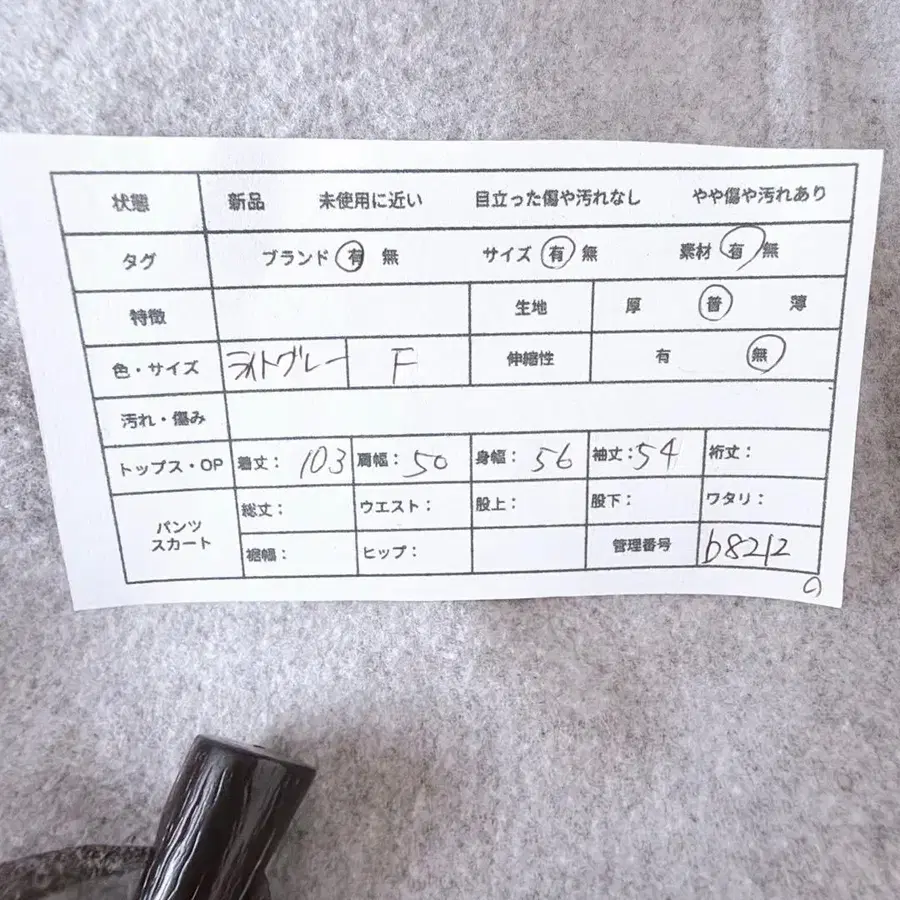 状態 新品 未使用に近い 目立った傷や汚れなし やや傷や汚れあり
タグ ブランド 有 無 サイズ 有 無 素材 有 無
特徴 生地 厚 普 薄
色・サイズ ライトグレー F 伸縮性 有 無
汚れ・傷み
トップス・OP 着丈: 103 肩幅: 50 身幅: 56 袖丈: 54 裄丈:
パンツ 総丈: ウエスト: 股上: 股下: ワタリ:
スカート 裾幅: ヒップ: 管理番号 b8212